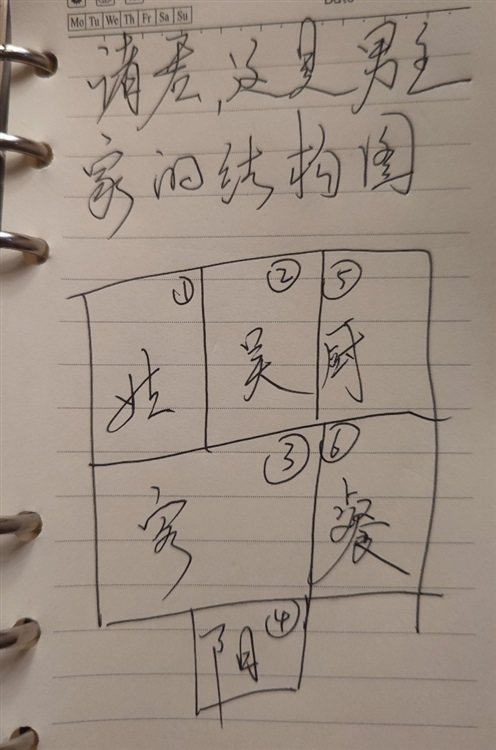 Mo Tu We Th Fr Sa Su
诸君,这是男主
家的结构图
① ② ⑤
姑 吴 厨
③ ⑥
客 餐
④
阳